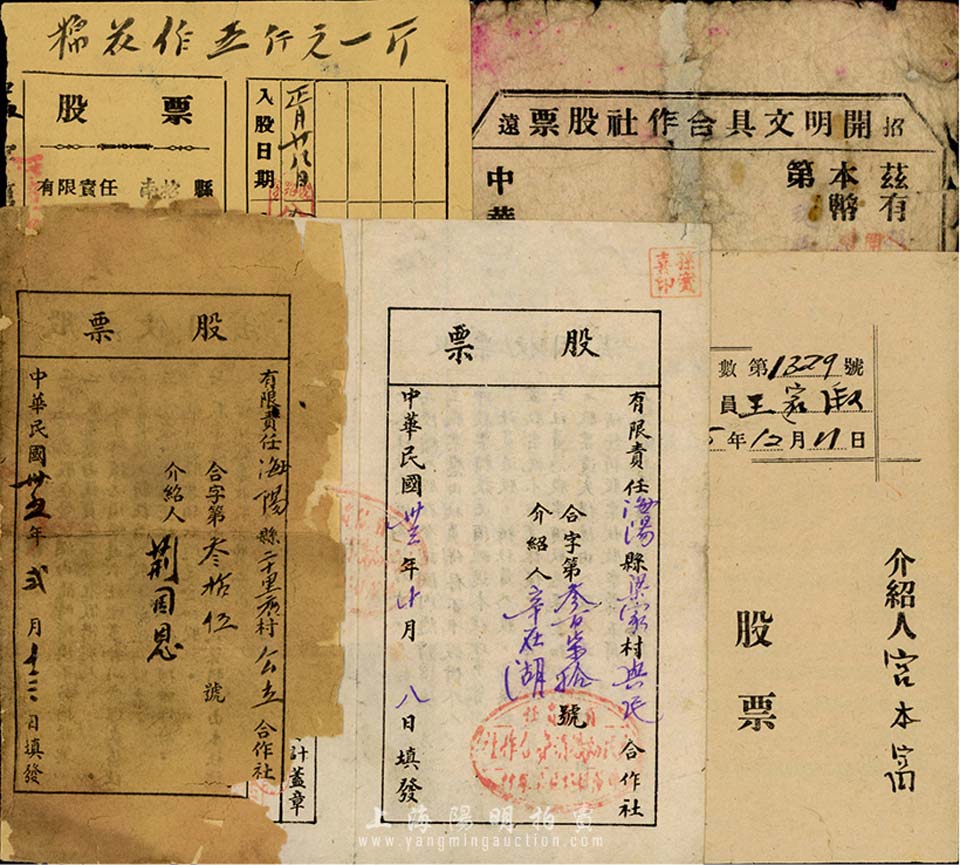 棉花作五仟元一斤
股票
有限責任
縣
入股日期
正月廿八日
招遠開明文具合作社股票
茲有
本幣
第
中華
股票
有限責任海陽縣二十里店村公立合作社
合字第叁拾伍號
介紹人
荆周恩
中華民國卅五年弍月十二日填發
計蓋章
孫寶喜印
股票
有限責任海陽縣梁家村興民合作社
合字第叁百柒拾號
介紹人辛在湖
中華民國卅三年十月八日填發
數第1329號
員王家淑
5年12月11日
介紹人宮本富
股票
上海陽明拍賣
www.yangmingauction.com